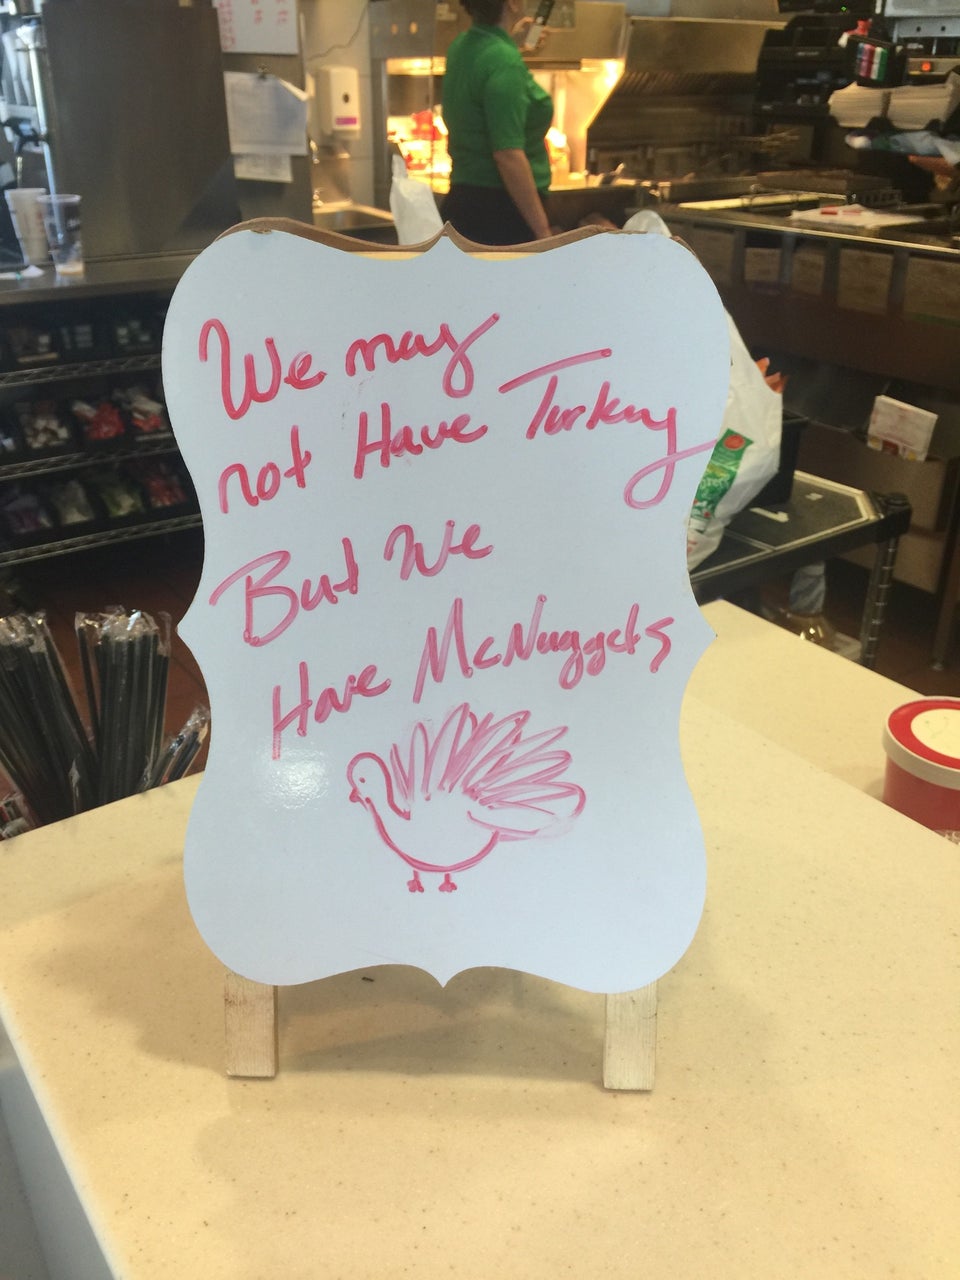 We may
not Have Turkey
But We
Have McNuggets